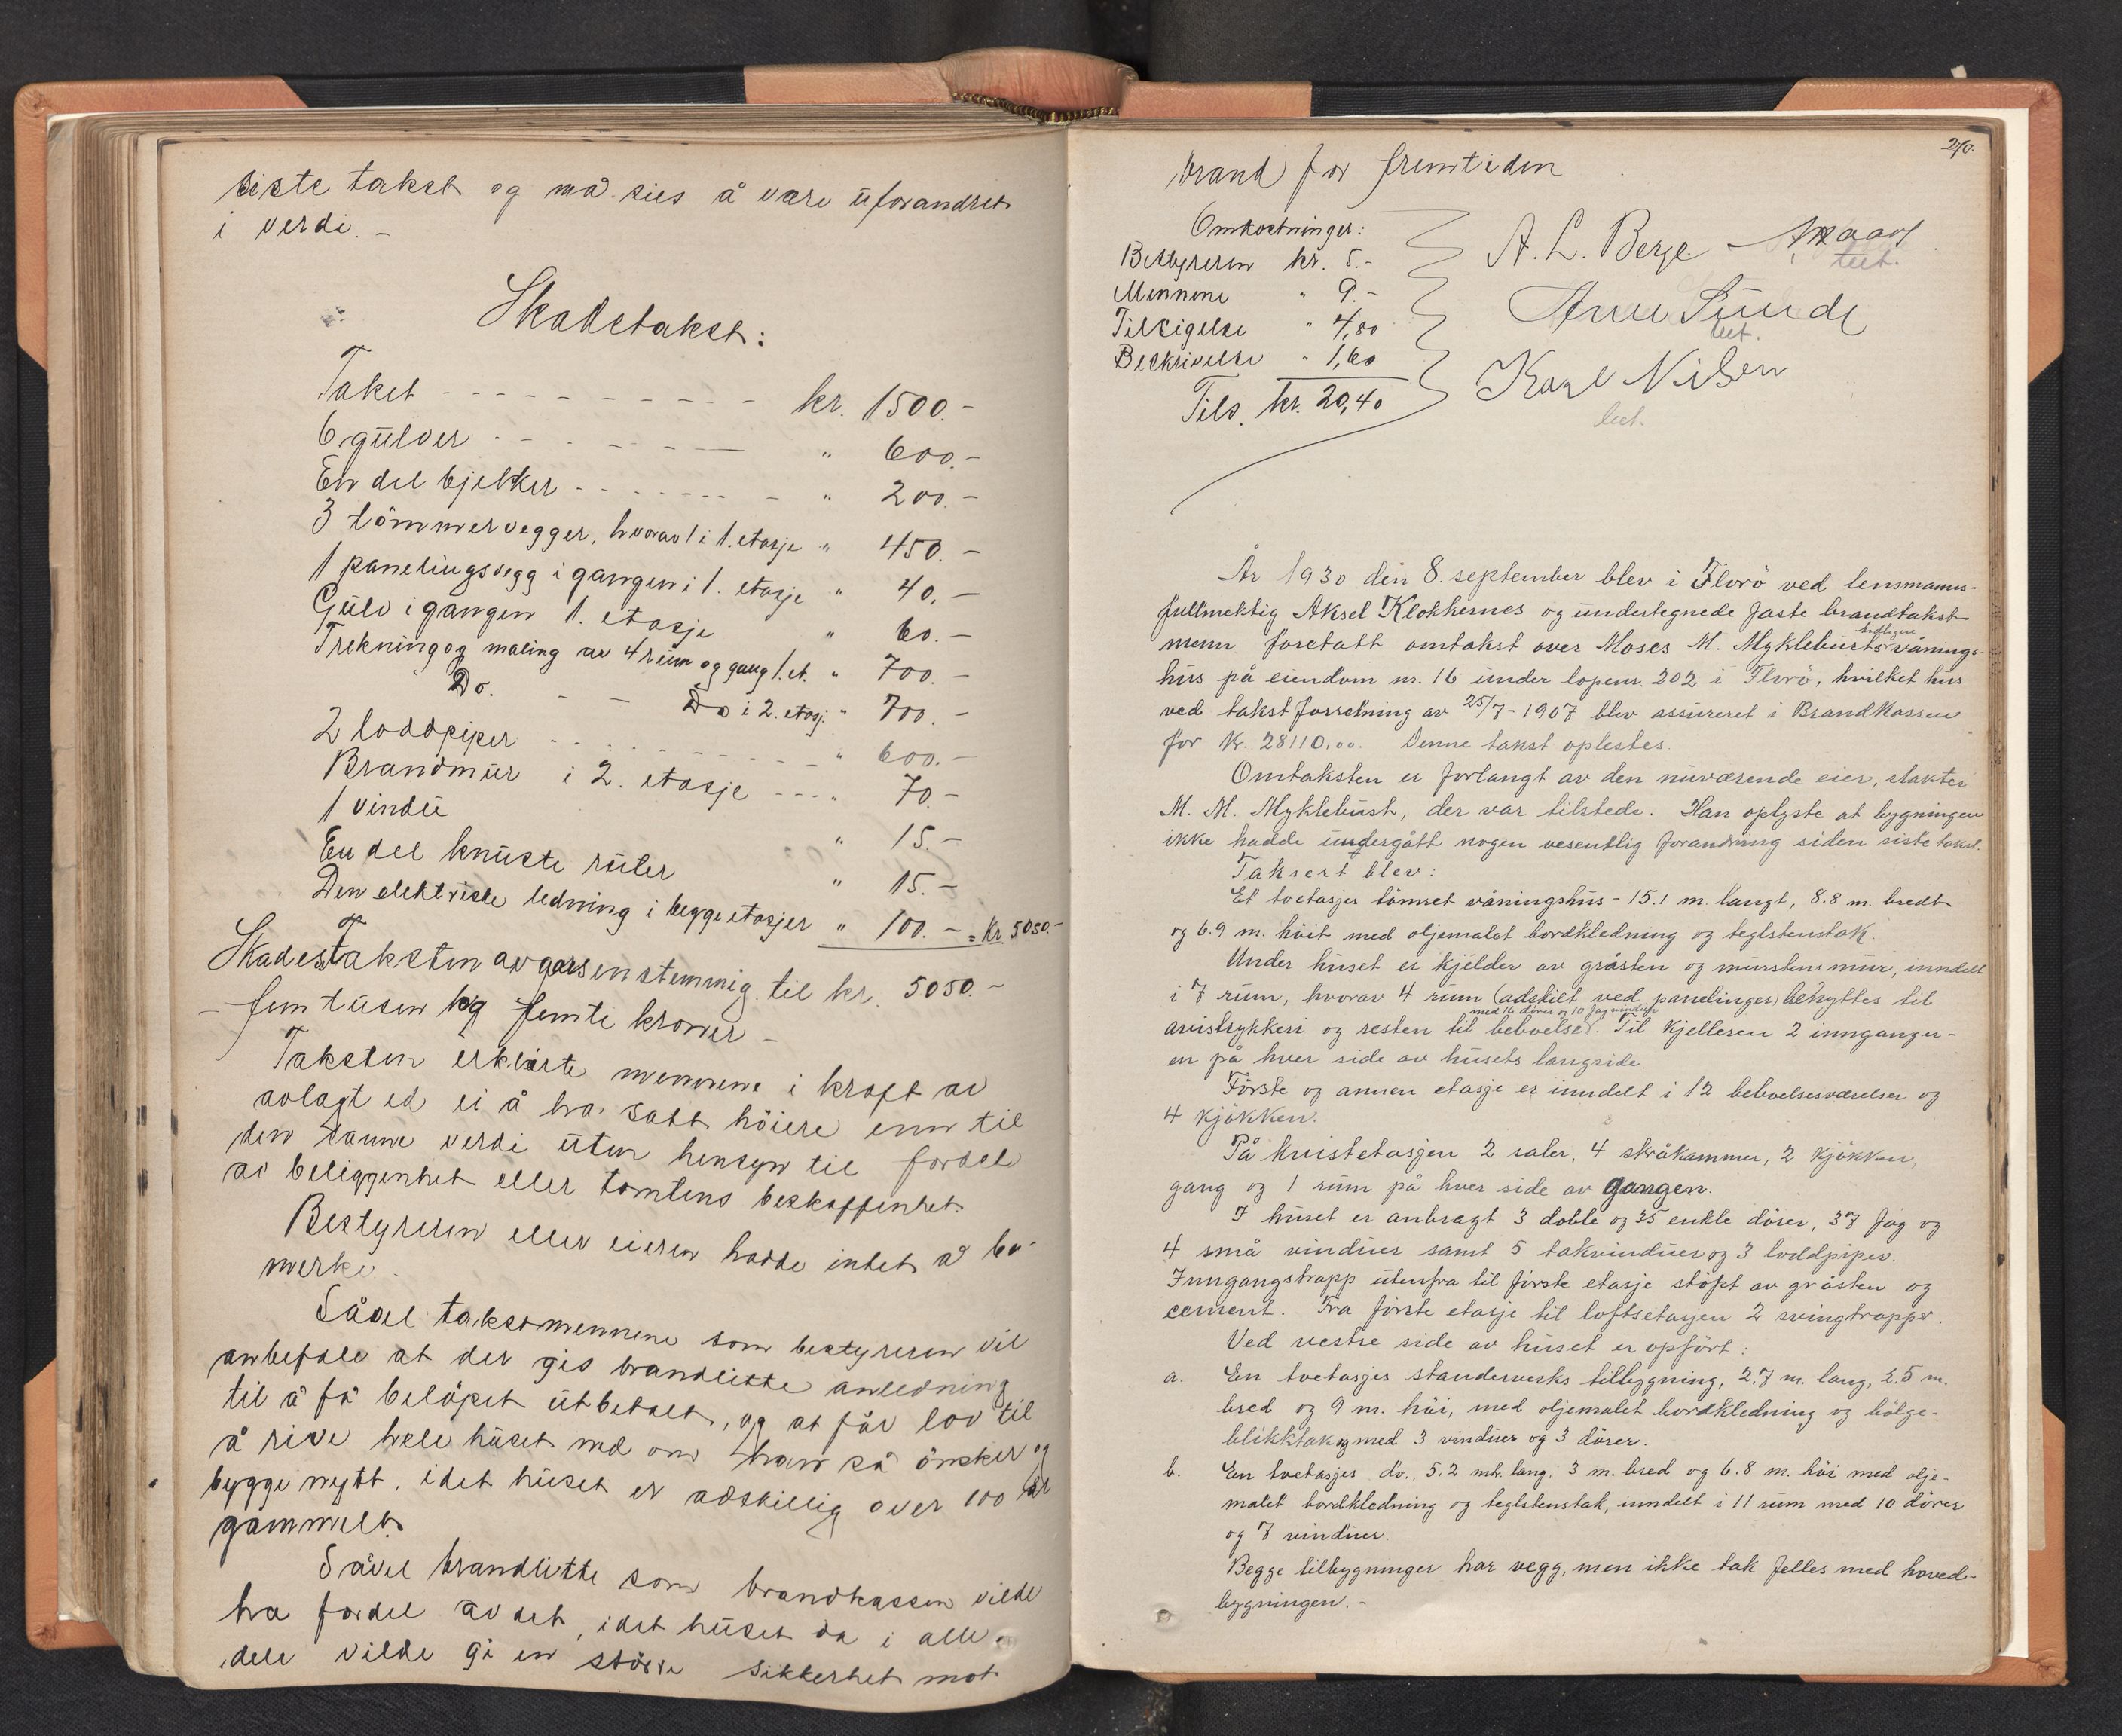 siste takst og må sies å være uforandret
i verdi. -
Skadetakst:
Taket - - - - - - - - - - kr. 1500.-
6 gulver - - - - - - - " 600.-
En del bjelker - - - - - - - " 200.-
3 tömmervegger, hvorav 1 i 1. etasje " 450.-
1 panelingsvegg i gangen i 1. etasje " 40.-
Gulv i gangen 1. etasje " 60.-
Trekning og maling av 4 rum og gang 1. et. " 700.-
Do. - - Do i 2. etasj. " 700.-
2 loddpiper - - - - - - - " 600.-
Brandmur i 2. etasje - - - " 70.-
1 vindu " 15.-
En del knuste ruter " 15.-
Den elektriske ledning i begge etasjer " 100.- = kr. 5050.-
Skadestaksten avgaes enstemmig til kr. 5050.-
- fem tusen og femti kroner -
Taksten erklærte mennene i kraft av
avlagt ed ei å ha satt höiere enn til
den sanne verdi uten hensyn til fordel
av beliggenhet eller tomtens beskaffenhet.
Bestyreren eller eieren hadde intet å be-
merke.
Såvel takstmennene som bestyreren vil
anbefale at der gis brandlitte anledning
til å få belöpet utbetalt, og at får lov til
å rive hele huset ned om han så önsker og
bygge nytt, idet huset er adskillig over 100 år
gammelt.
Såvel brandlitte som brandkassen vilde
ha fordel av det, idet huset da i alle
dele vilde gi en större sikkerhet mot
270.
brand for fremtiden
Omkostninger:
Bestyreren kr. 5.-
Mennene " 9.-
Tilsigelse " 4,80
Beskrivelse " 1,60
Tils. kr. 20,40
A. L. Berge
takst.
Arne Sunde
takst.
Karl Nilsen
takst.
År 1930 den 8. september blev i Florö ved lensmanns-
fullmektig Aksel Klokkernes og undertegnede faste brandtakst-
menn foretatt omtakst over Moses M. Myklebusts tidligere vånings-
hus på eiendom nr. 16 under löpenr. 202 i Florö, hvilket hus
ved takstforretning av 25/7-1907 blev assureret i Brandkassen
for kr. 28110,00. Denne takst oplestes.
Omtaksten er forlangt av den nuværende eier, slakter
M. M. Myklebust, der var tilstede. Han oplyste at bygningen
ikke hadde undergått nogen vesentlig forandring siden siste takst.
Taksert blev:
Et toetasjes tömret våningshus - 15.1 m. langt, 8.8 m. bredt
og 6.9 m. höit med oljemalet bordkledning og teglstenstak.
Under huset er kjelder av gråsten og murstensmur, inndelt
i 7 rum, hvorav 4 rum (adskilt ved panelinger) benyttes til
avistrykkeri og resten til beboelse med 16 dörer og 10 fag vinduer. Til kjelleren 2 innganger -
en på hver side av husets langside.
Förste og annen etasje er inndelt i 12 beboelsesværelser og
4 kjökken.
På kvistetasjen 2 saler, 4 skråkammer, 2 kjökken,
gang og 1 rum på hver side av gangen.
I huset er anbragt 3 doble og 35 enkle dörer, 37 fag og
4 små vinduer samt 5 takvinduer og 3 loddpiper.
Inngangstrapp utenfra til förste etasje stöpt av gråsten og
cement. Fra förste etasje til loftsetasjen 2 svingtrapper.
Ved vestre side av huset er opfört:
a. En toetasjes standerverks tilbygning, 2.7 m. lang, 2.5 m.
bred og 9 m. höi, med oljemalet bordkledning og bölge-
blikktak og med 3 vinduer og 3 dörer.
b. En toetasjes do., 5.2 mtr. lang, 3 m. bred og 6.8 m. höi med olje-
malet bordkledning og teglstenstak, inndelt i 11 rum med 10 dörer
og 7 vinduer.
Begge tilbygninger har vegg, men ikke tak felles med hoved-
bygningen. -